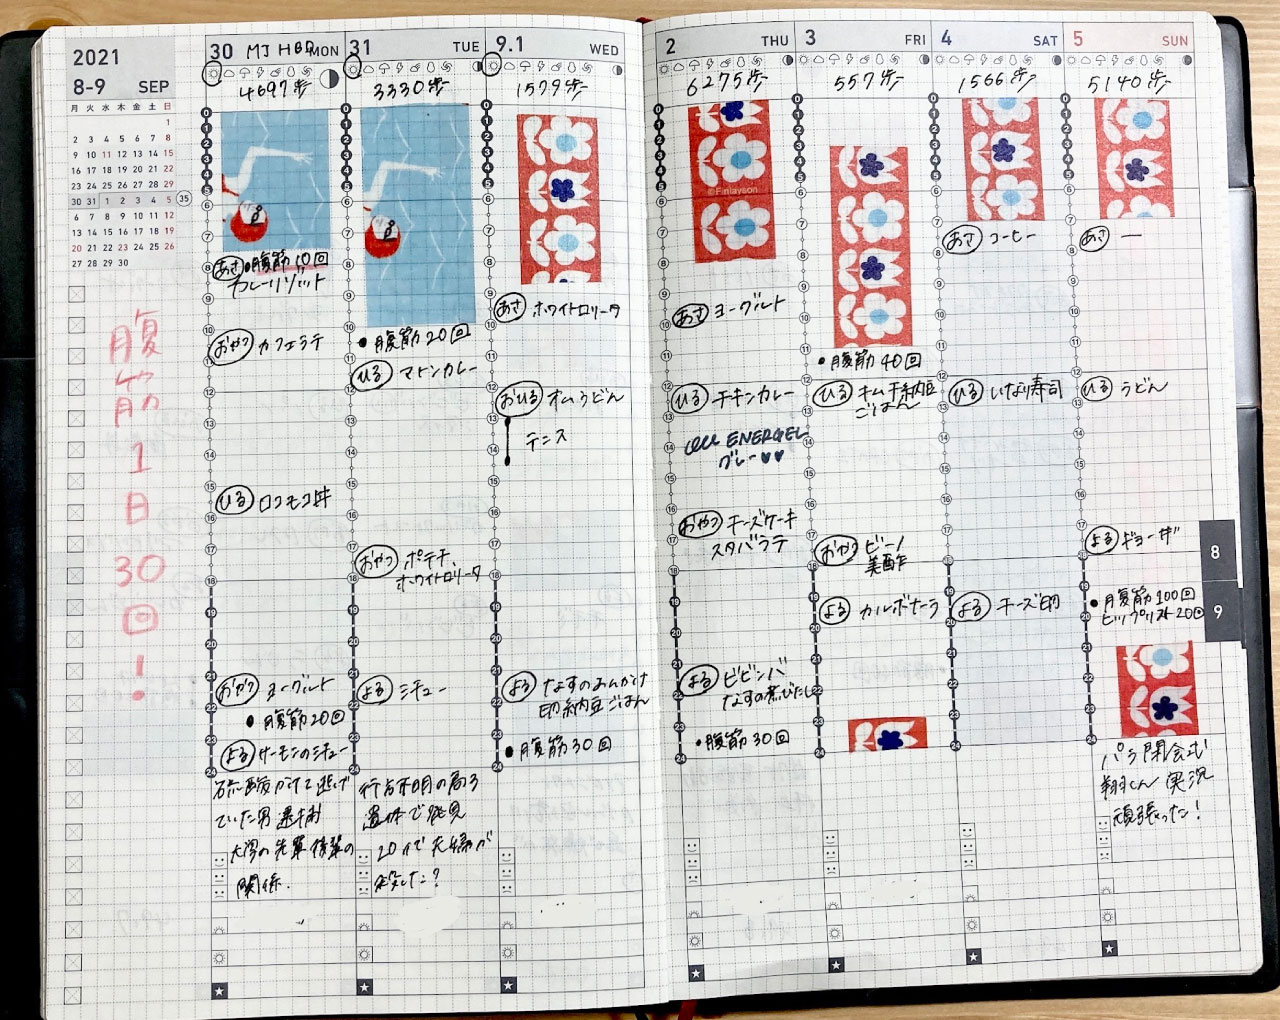 2021
8-9 SEP
月 火 水 木 金 土 日
1
2 3 4 5 6 7 8
9 10 11 12 13 14 15
16 17 18 19 20 21 22
23 24 25 26 27 28 29
30 31 1 2 3 4 5
35
6 7 8 9 10 11 12
13 14 15 16 17 18 19
20 21 22 23 24 25 26
27 28 29 30
腹筋1日30回!
30 MJ HBD MON
4697歩
あさ ・腹筋10回
カレーリゾット
おやつ カフェラテ
ひる ロコモコ丼
おやつ ヨーグルト
・腹筋20回
よる サーモンのシチュー
硫酸かけて逃げ
ていた男 逮捕
大学の先輩後輩の
関係.
31 TUE
3330歩
・腹筋20回
ひる マトンカレー
おやつ ポテチ、
ホワイトロリータ
よる シチュー
行方不明の
遺体で発見
夫婦が
殺した?
9.1 WED
1579歩
あさ ホワイトロリータ
おひる オムうどん
テニス
よる なすのあんかけ
卵納豆ごはん
・腹筋30回
2 THU
6275歩
©Finlayson
あさ ヨーグルト
ひる チキンカレー
ENERGEL
グレー♥♥
おやつ チーズケーキ
スタバラテ
よる ビビンバ
なすの煮びたし
・腹筋30回
3 FRI
557歩
・腹筋40回
ひる キムチ納豆
ごはん
おやつ ピーノ
美酢
よる カルボナーラ
4 SAT
1566歩
あさ コーヒー
ひる いなり寿司
よる チーズ
5 SUN
5140歩
あさ ー
ひる うどん
よる ギョーザ
・腹筋100回
ヒップリフト20回
パラ閉会式
翔くん 実況
頑張った!
8
9